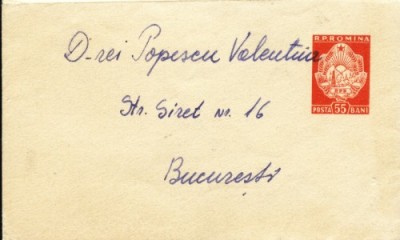 R.P.ROMINA
D-rei Popescu Valentina
Str. Siret nr. 16
București
RPR
POSTA 55 BANI